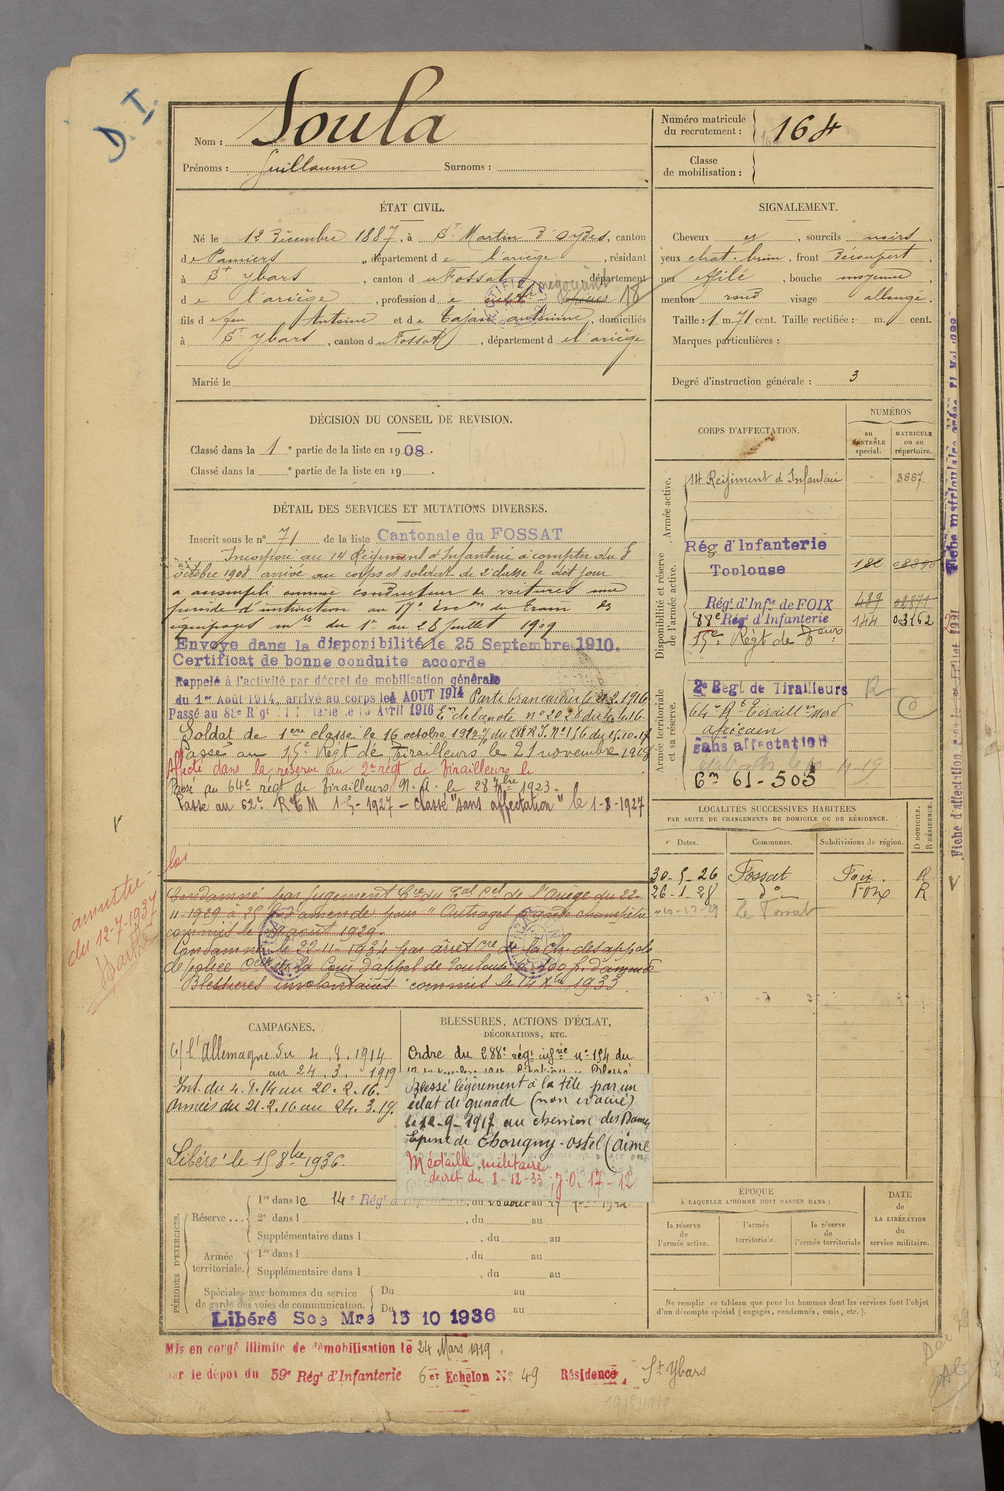 D. I.
Nom : Soula
Prénoms : Guillaume Surnoms :
Numéro matricule du recrutement : 164
Classe de mobilisation :
ÉTAT CIVIL.
Né le 12 Décembre 1887, à St Martin d'Oydes, canton
de Pamiers, département de l'ariège, résidant
à St Ybars, canton du Fossat, département
de l'ariège, profession de négociant 18
fils de feu Antoine et de Cajan antoinine, domiciliés
à St Ybars, canton du Fossat, département de l'ariège
Marié le
SIGNALEMENT.
Cheveux et, sourcils noirs,
yeux chat. brun, front découvert,
nez effilé, bouche moyenne
menton rond visage allongé.
Taille : 1 m. 71 cent. Taille rectifiée : m. cent.
Marques particulières :
Degré d'instruction générale : 3
DÉCISION DU CONSEIL DE REVISION.
Classé dans la 1e partie de la liste en 1908.
Classé dans la e partie de la liste en 19
DÉTAIL DES SERVICES ET MUTATIONS DIVERSES.
Inscrit sous le n° 71 de la liste Cantonale du FOSSAT
Incorporé au 14 Régiment d'Infanterie à compter du 8
octobre 1908 arrivé au corps et soldat de 2e classe le dit jour
a accompli comme conducteur de voitures une
période d'instruction au 17e Eron du Train des
équipages mres du 1er au 28 juillet 1909
Envoyé dans la disponibilité le 25 Septembre 1910.
Certificat de bonne conduite accordé
Rappelé à l'activité par décret de mobilisation générale
du 1er Août 1914, arrivé au corps le 4 AOUT 1914 Parti brancardier le 21.2.1916
Passé au 88e Rgt d'Infanterie le 15 Avril 1916
Soldat de 1ere classe le 16 octobre 1917 du 288 R.I. N° 156 du 15.10.17
Passé au 15e Régt de Tirailleurs le 21 novembre 1918
Affecté dans la réserve au 2e régt de Tirailleurs le
Passé au 64e régt de Tirailleurs N.A. le 28 7bre 1923.
Passé au 62e R T M 1-5-1927 - classé "sans affectation" le 1-8-1927
loi
amnistie
du 12-7-1937
Condamné par jugement Cre du Tal Sel de l'Ariège du 22-
11-1929 à 25 f d'amende pour "Outrages à garde champêtre"
commis le août 1929.
Condamné le 22-11-1934 par arrêt cre de la Ch. des appels
de police Orelle de la Cour d'appel de Toulouse à 100 f. d'amende
"Blessures involontaires" commis le 14 Xbre 1933.
CORPS D'AFFECTATION.
NUMÉROS
au contrôle spécial.
MATRICULE ou au répertoire.
Armée active.
14 Régiment d'Infanterie 8887
Disponibilité et réserve de l'armée active.
Rég d'Infanterie
Toulouse 182
Régt d'Infie de FOIX 487 02871
88e Rég d'Infanterie 144 03162
15e Régt de Tirailleurs
Armée territoriale et sa réserve.
2e Regt de Tirailleurs R
64e Rt Tiraill. Nord africain
sans affectation
Cm 61-503
LOCALITÉS SUCCESSIVES HABITÉES
PAR SUITE DE CHANGEMENTS DE DOMICILE OU DE RÉSIDENCE.
Dates. Communes. Subdivisions de région. D DOMICILE. R RÉSIDENCE.
30-5-26 Fossat Foix R
26-1-28 do Foix R
Le Fossat
CAMPAGNES.
C/ l'Allemagne du 4.8.1914
au 24.3.1919
Int. du 4.8.14 au 20.2.16.
Armées du 21.2.16 au 24.3.19.
Libéré le 15 8bre 1936.
BLESSURES, ACTIONS D'ÉCLAT,
DÉCORATIONS, ETC.
Ordre du 288e régt infrie n° 194 du
Blessé légèrement à la tête par un
éclat de grenade (non évacué)
le 12-9-1917 au chemin des Dames
Epine de Chevregny-Ostel (aisne
Médaille militaire
décret du 8-12-33 ; J.O. 17-12
PÉRIODES D'EXERCICES.
Réserve... 1re dans le 14e Rég
2e dans l , du au
Supplémentaire dans l , du au
Armée territoriale. 1re dans l , du au
Supplémentaire dans l , du au
Spéciales aux hommes du service de garde des voies de communication. Du au
Du au
Libéré Sce Mre 15 10 1936
ÉPOQUE
À LAQUELLE L'HOMME DOIT PASSER DANS :
la réserve de l'armée active.
l'armée territoriale.
la réserve de l'armée territoriale
DATE de LA LIBÉRATION du service militaire.
Ne remplir ce tableau que pour les hommes dont les services font l'objet
d'un décompte spécial (engagés, condamnés, omis, etc.).
Mis en congé illimité de démobilisation le 24 Mars 1919.
par le dépot du 59e Régt d'Infanterie 6er Echelon N° 49 Résidence St Ybars